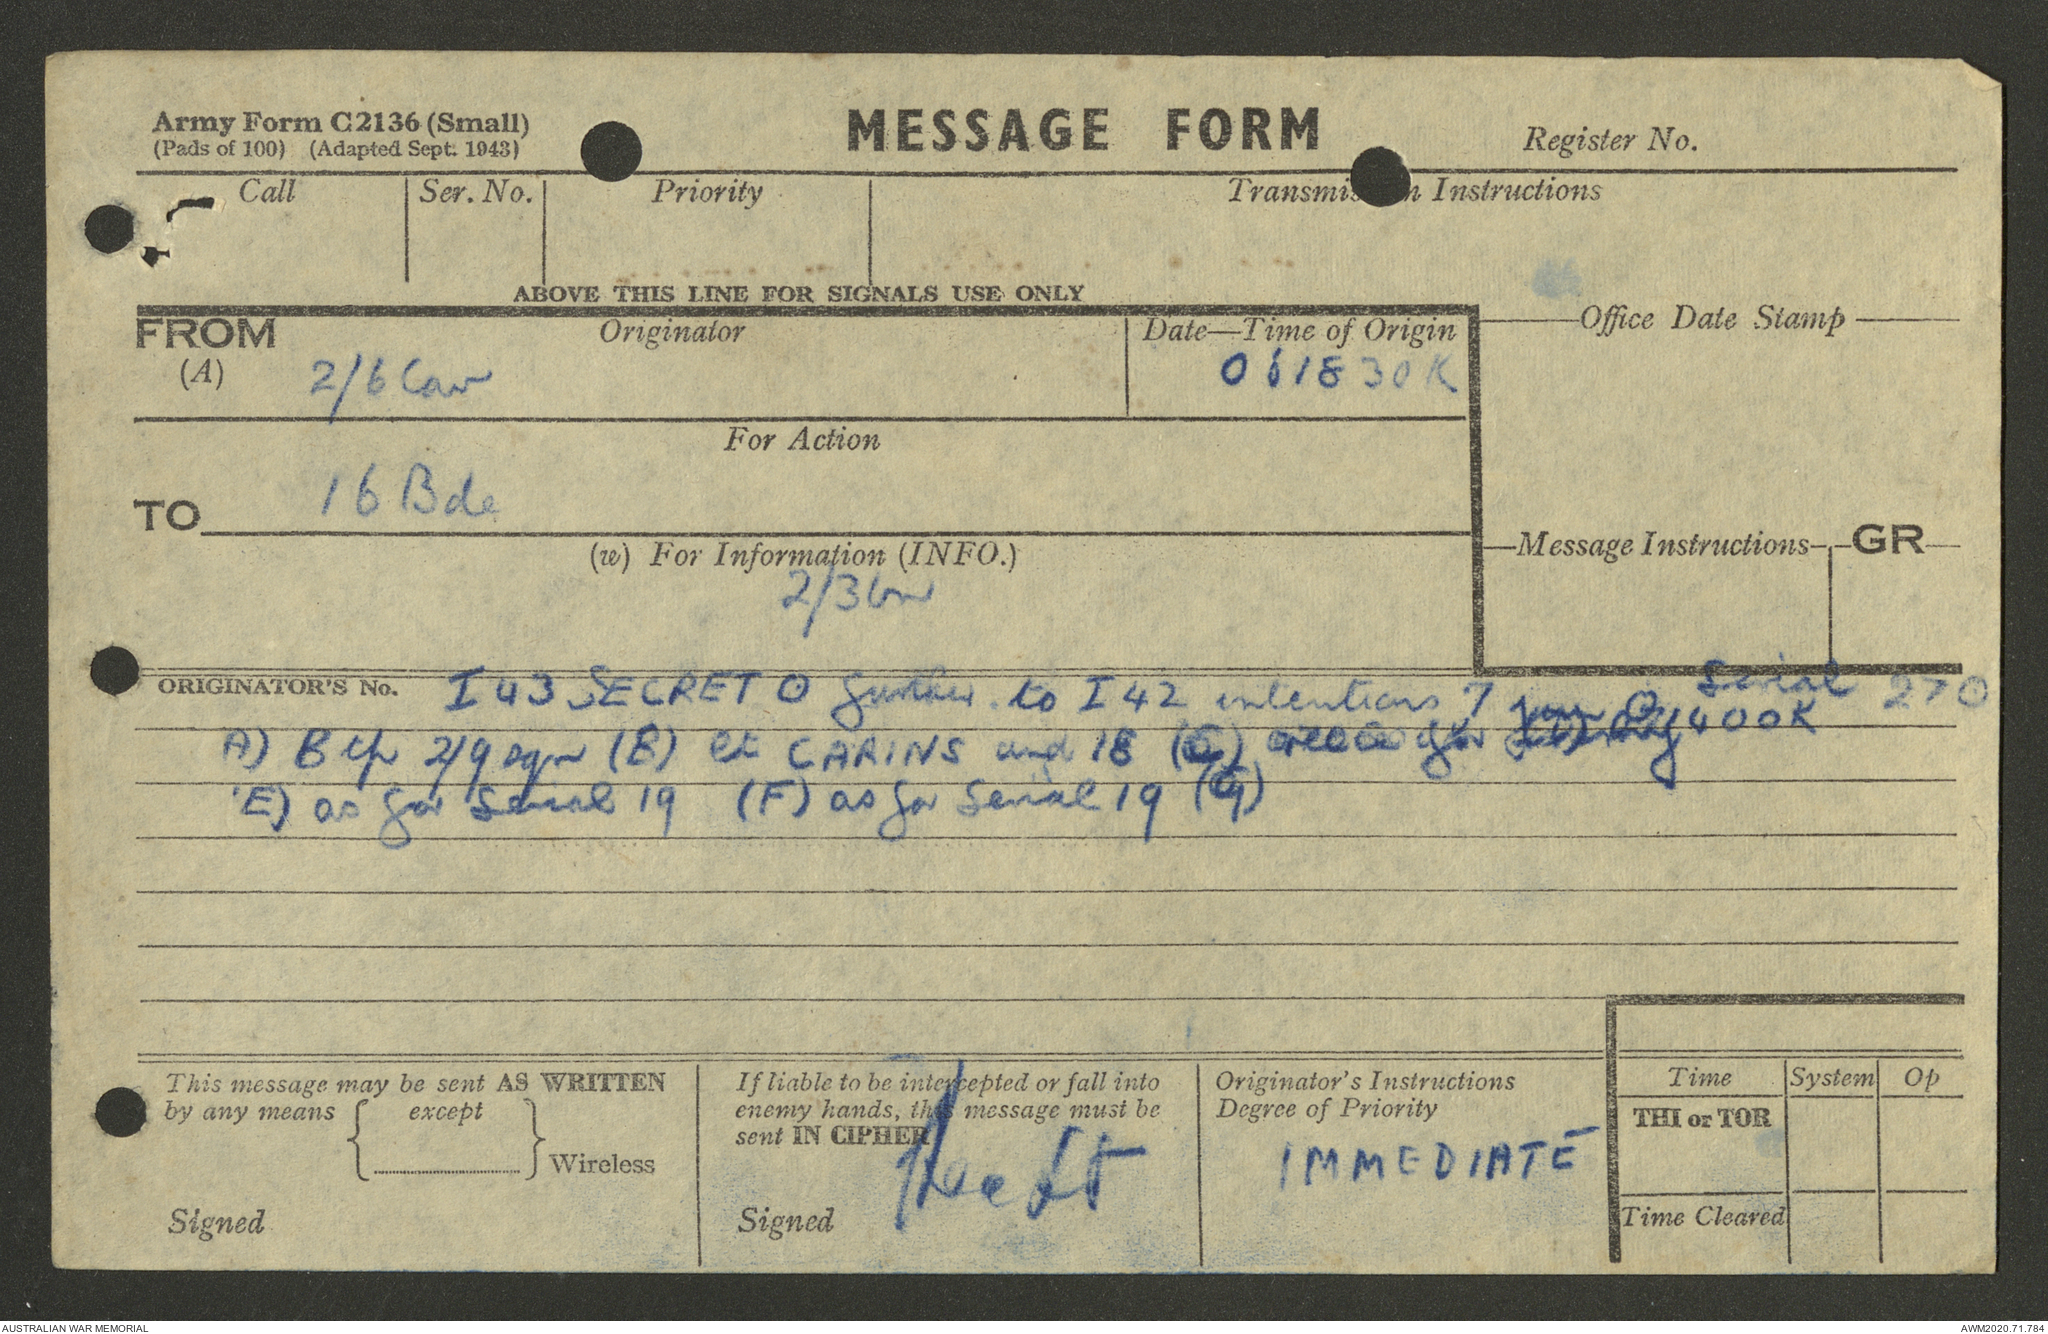 Army Form C2136 (Small)
(Pads of 100) (Adapted Sept. 1943)
MESSAGE FORM
Register No.
Call
Ser. No.
Priority
Transmis n Instructions
ABOVE THIS LINE FOR SIGNALS USE ONLY
FROM
(A)
Originator
2/6 Cav
Date—Time of Origin
061830K
Office Date Stamp
For Action
TO
16 Bde
(w) For Information (INFO.)
2/3 bn
Message Instructions
GR
ORIGINATOR'S No. I 43 SECRET O further to I 42 intentions 7 Serial 27 O
A) B tp 2/9 sqn (B) Lt CARINS and 18 (C) 1400K
E) as for Serial 19 (F) as for Serial 19 (G)
This message may be sent AS WRITTEN
by any means
except
Wireless
Signed
If liable to be intercepted or fall into
enemy hands, this message must be
sent IN CIPHER
Signed
Originator's Instructions
Degree of Priority
IMMEDIATE
Time
System
Op
THI or TOR
Time Cleared
AUSTRALIAN WAR MEMORIAL
AWM2020.71.784